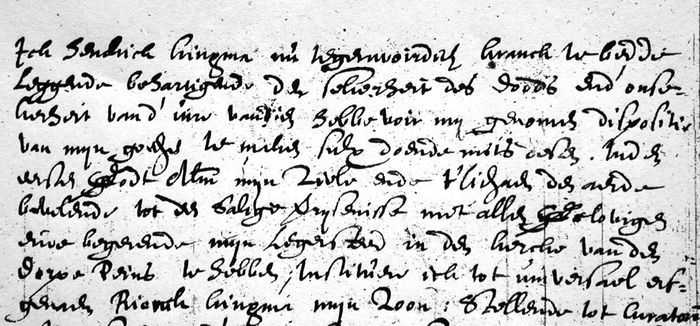 Ick Hendrick Kingma nu tegenwoirdich kranck te bedde
leggende behartigende de sekerheit des doods end onse-
kerheit vand uire vandien hebbe voir my genomen dispositie
van mijn goedt te maken sulx doende mits desen. Inden
eersten Godt Alm mijn Ziele ende t'lichaem der aerde
bevelende tot der Salige Verrysenisse met allen Gelovigen
ende begerende mijn Legersteed in der kercke van den
dorpe Peins te hebben, Instituere ick tot universael erf-
genaem Kingma mijn Zoon: Stellende tot Curator